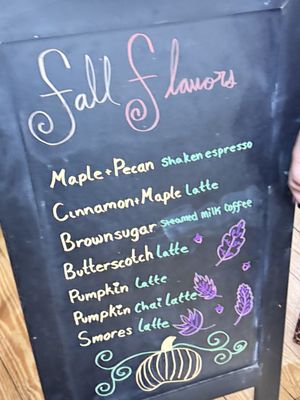 Fall Flavors
Maple + Pecan shaken espresso
Cinnamon + Maple latte
Brown sugar steamed milk coffee
Butterscotch latte
Pumpkin latte
Pumpkin Chai latte
Smores latte